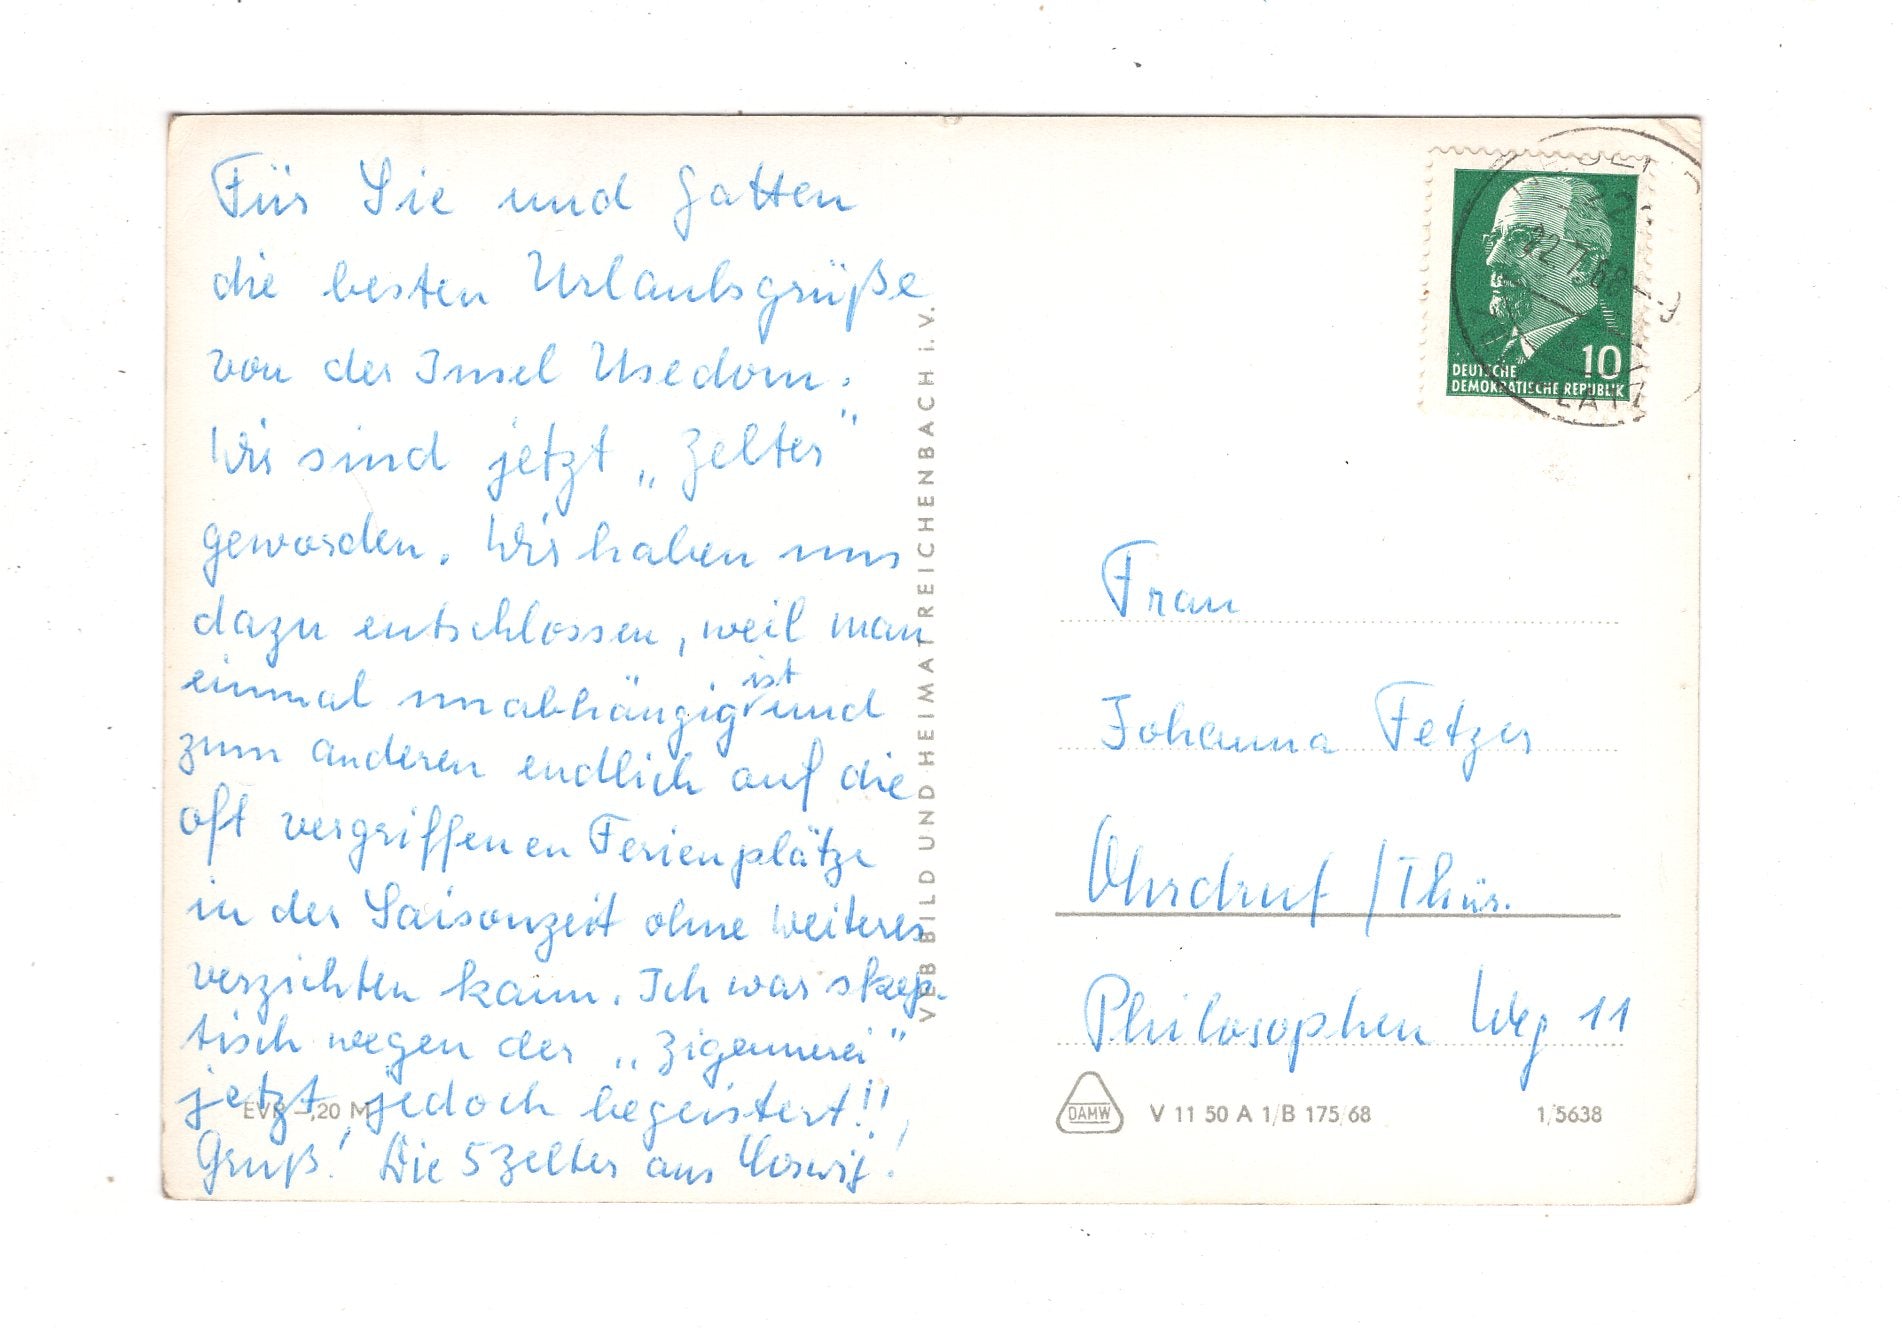 Für Sie und Gatten
die besten Urlaubsgrüße
von der Insel Usedom.
Wir sind jetzt „Zelter"
geworden. Wir haben uns
dazu entschlossen, weil man
einmal unabhängig ist und
zum anderen endlich auf die
oft vergriffenen Ferienplätze
in der Saisonzeit ohne weiteres
verzichten kann. Ich war skep-
tisch wegen der „Zigeunerei"
jetzt jedoch begeistert!!
Gruß! Die 5 Zelter aus Coswig!
EVP –,20 M
VEB BILD UND HEIMAT REICHENBACH i. V.
22.7.68
10
DEUTSCHE
DEMOKRATISCHE REPUBLIK
Frau
Johanna Fetzer
Ohrdruf /Thür.
Philosophen Weg 11
DAMW
V 11 50 A 1/B 175/68
1/5638